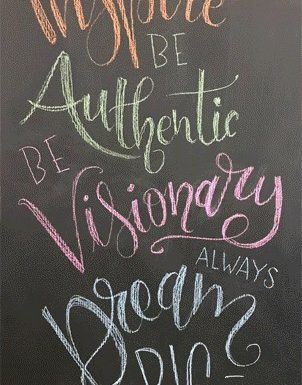 Inspire
BE
Authentic
BE
Visionary
ALWAYS
Dream